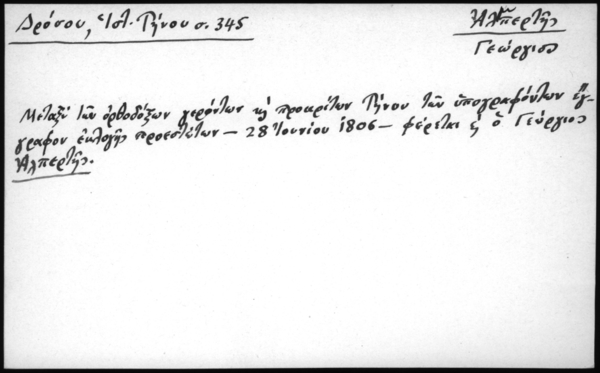 Δρόσου, Ἱστ. Τήνου σ. 345
Ἀλπερτῆς
Γεώργιος
Μεταξὺ τῶν ὀρθοδόξων γερόντων κ̀ προκρίτων Τήνου τῶν ὑπογραφόντων ἔγ-
γραφον ἐκλογῆς προεστώτων — 28 Ἰουνίου 1806 — φέρεται κ̀ ὁ Γεώργιος
Ἀλπερτῆς.